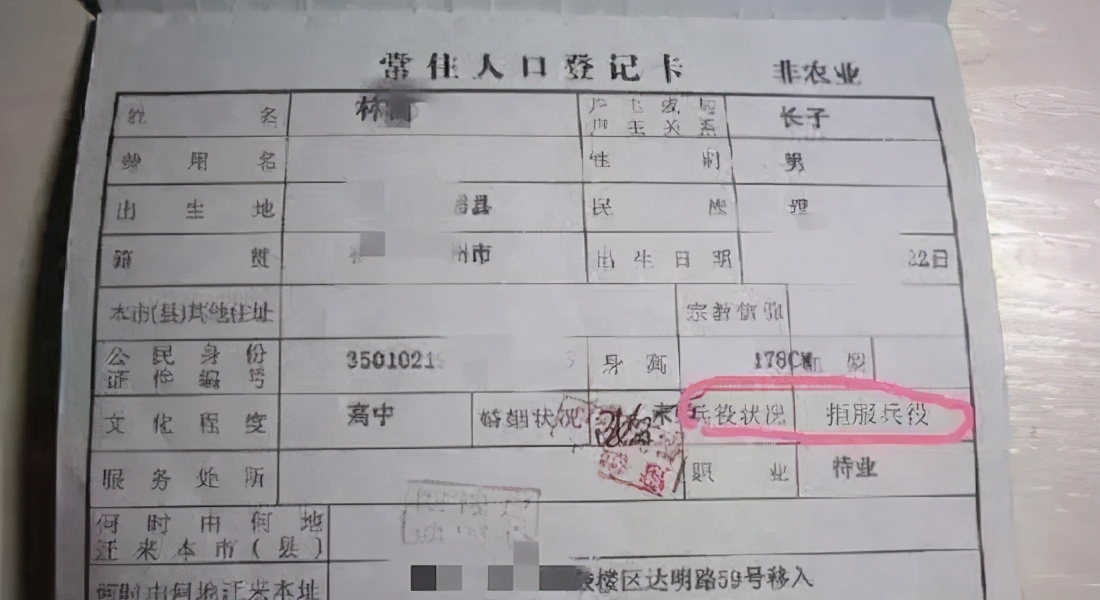 常住人口登记卡 非农业
姓名 林 户主或与户主关系 长子
曾用名 性别 男
出生地 县 民族
籍贯 市 出生日期 22日
本市(县)其他住址 宗教信仰
公民身份证件编号 3501021 身高 178CM
文化程度 高中 婚姻状况 未 兵役状况 拒服兵役
服务处所 职业 待业
何时由何地迁来本市(县)
何时由何地迁来本址 楼区达明路59号移入